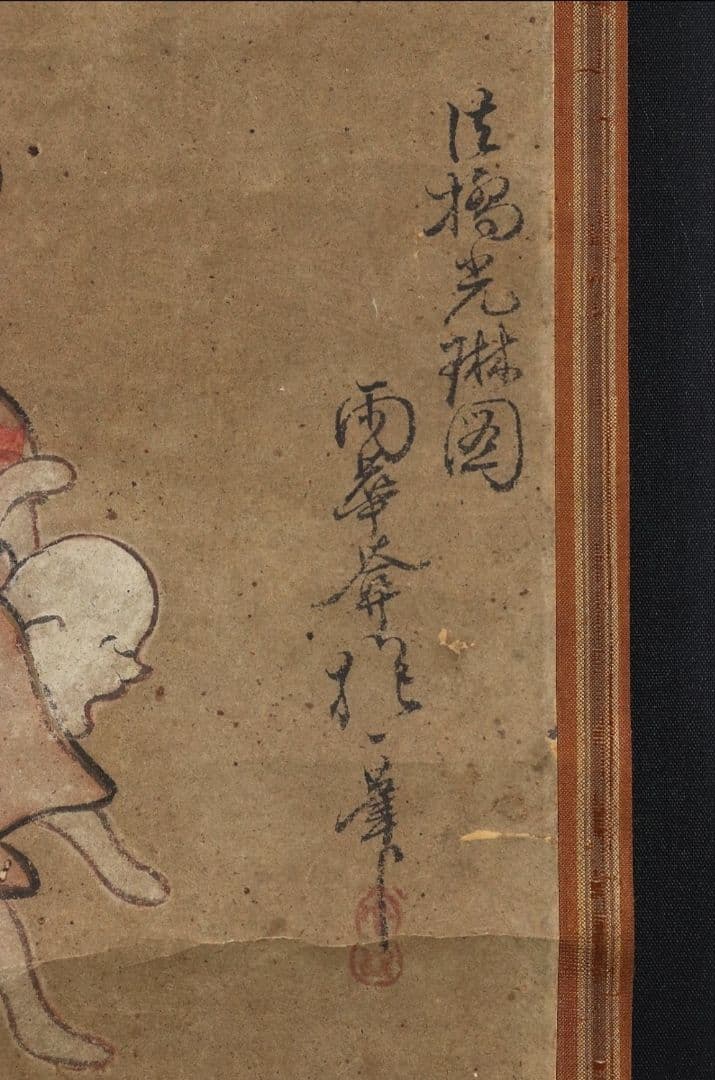 法橋光琳図
雨華菴抱一筆